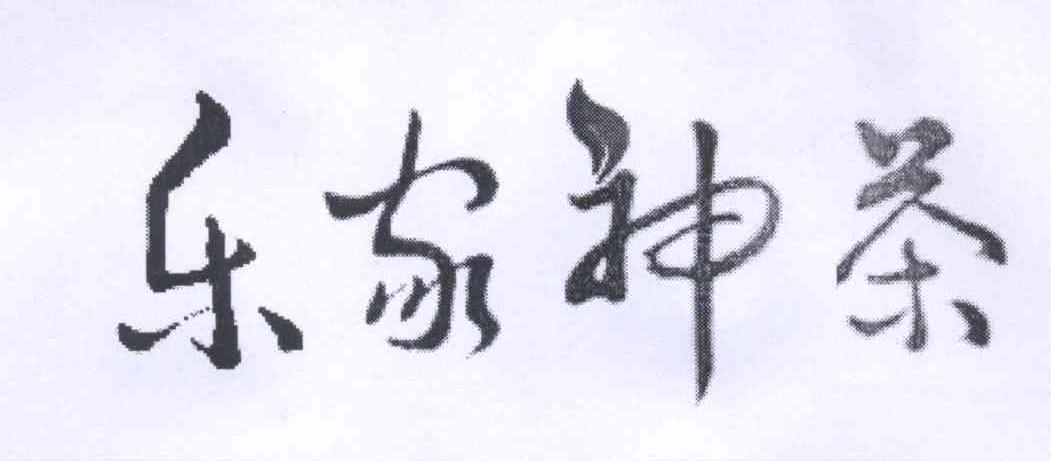 乐家神茶